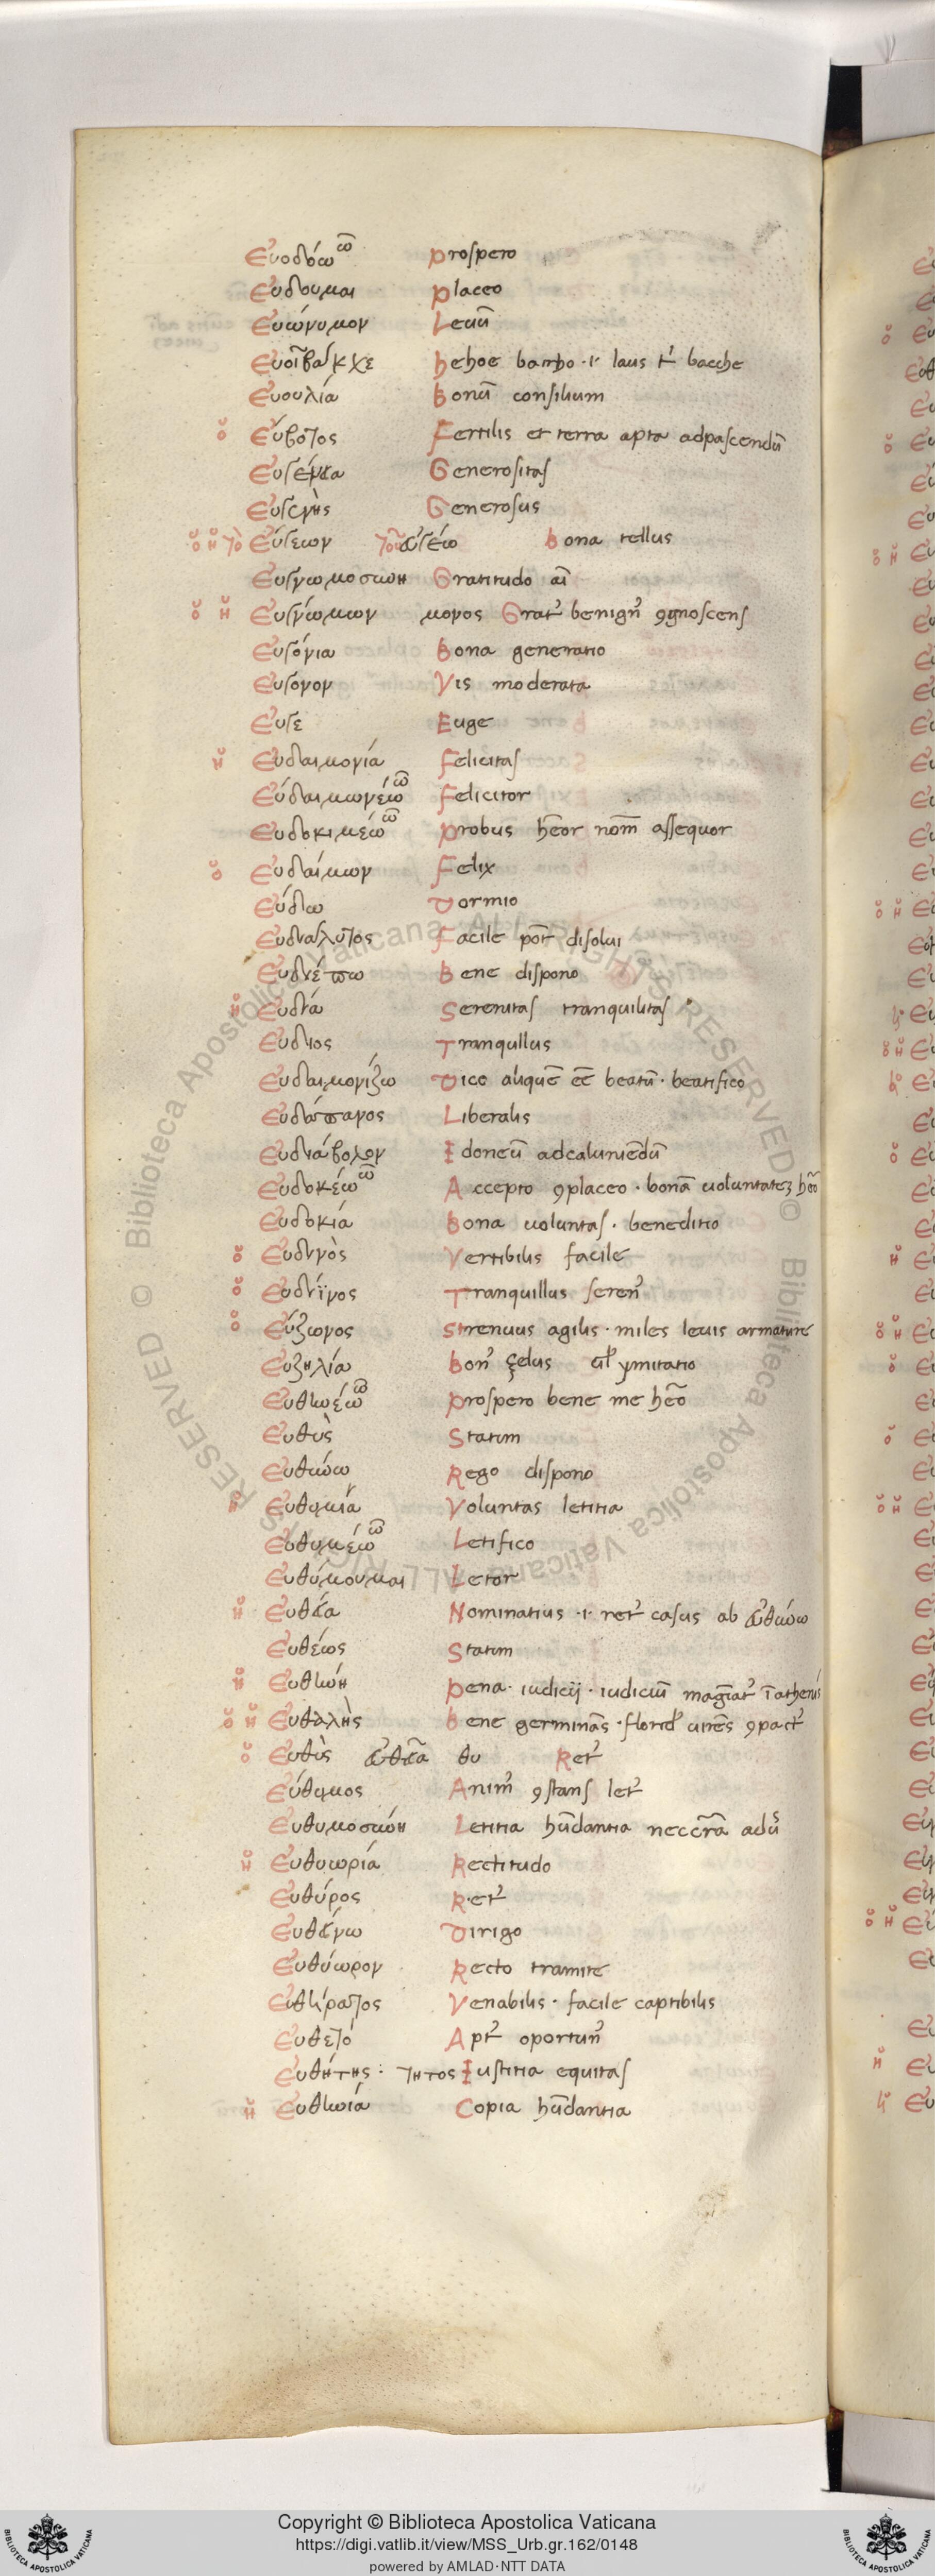 Εὐοδόω ῶ prospero
Εὐδουμαι placeo
Εὐώνυμον Leuũ
Εὐοῖβάκχε hehoe baccho · i · laus bacche
Εὐουλία Bonũ consilium
ὁ Εὔβοτος Fertilis et terra apta adpascendũ
Εὐγένεια Generositas
Εὐγενὴς Generosus
ὁ ἡ τὸ Εὔγεων Bona tellus
Εὐγνωμοσύνη Gratitudo aĩ
ὁ ἡ Εὐγνώμων μονος Grat᾽ benign᾽ ꝯgnoscens
Εὐγόνια Bona generatio
Εὐγονον Vis moderata
Εὐγε Euge
ἡ Εὐδαιμονία Felicitas
Εὐδαιμωνέω ῶ Felicitor
Εὐδοκιμέω ῶ probus hẽor nom̃ assequor
ὁ Εὐδαίμων Felix
Εὕδω Dormio
Εὐδιάλυτος Facile põt disolui
Εὐδιέπω Bene dispono
ἡ Εὐδία Serenitas tranquilitas
Εὐδιος Tranqullus
Εὐδαιμονίζω Dico aliquẽ eẽ beatũ · beatifico
Εὐδάπανος Liberalis
Εὐδιάβολον Idoneũ adcaluniẽdũ
Εὐδοκέω ῶ Accepto ꝯplaceo · bonã uoluntateʒ hẽo
Εὐδοκία Bona uoluntas · beneditio
ὁ Εὐδινὸς Vertibilis facile
ὁ Εὐδιεινος Tranquillus seren᾽
ὁ Εὔζωνος Strenuus agilis · miles leuis armature
Εὐζηλία Bon᾽ çelus ul̃ ymitatio
Εὐθηνέω ῶ prospero bene me hẽo
Εὐθὺς Statim
Εὐθύνω Rego dispono
ἡ Εὐθυμία Voluntas letitia
Εὐθυμέω ῶ Letifico
Εὐθύμουμαι Letor
ἡ Εὐθεία Nominatius · i · ret᾽ casus ab εὐθύνω
Εὐθέως Statim
ἡ Εὐθύνη pena · iudicij · iudiciũ magr̃at᾽ ĩathenis
ὁ ἡ Εὐθαλὴς Bene germinãs · florid᾽ uirẽs ꝯpact᾽
ὁ Εὐθὺς εὐθεῖα θυ Ret᾽
Εὔθυμος Anim᾽ ꝯstans let᾽
Εὐθυμοσύνη Letitia hũdantia neccr̃a adũ
ἡ Εὐθυωρία Rectitudo
Εὐθύρος Ret᾽
Εὐθείνω Dirigo
Εὐθύωρον Recto tramite
Εὐθήρατος Venabilis · facile captibilis
Εὐθετό Apt᾽ oportun᾽
Εὐθύτης : τητος Iustitia equitas
ἡ Εὐθηνία Copia hũdantia
Copyright © Biblioteca Apostolica Vaticana
https://digi.vatlib.it/view/MSS_Urb.gr.162/0148
powered by AMLAD·NTT DATA